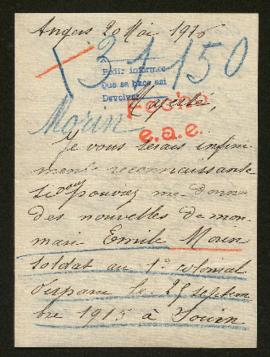 Angers 20 Mai 1916
31150
Pedir informes
Que se hace así
Devolver
Majesté,
Hecho
e.a.e.
Morin
Je vous serais infini
ment reconnaissante
si vous pouvez me donner
des nouvelles de mon
mari Emile Morin
soldat au 1er colonial
disparu le 25 septem
bre 1915 à Souin